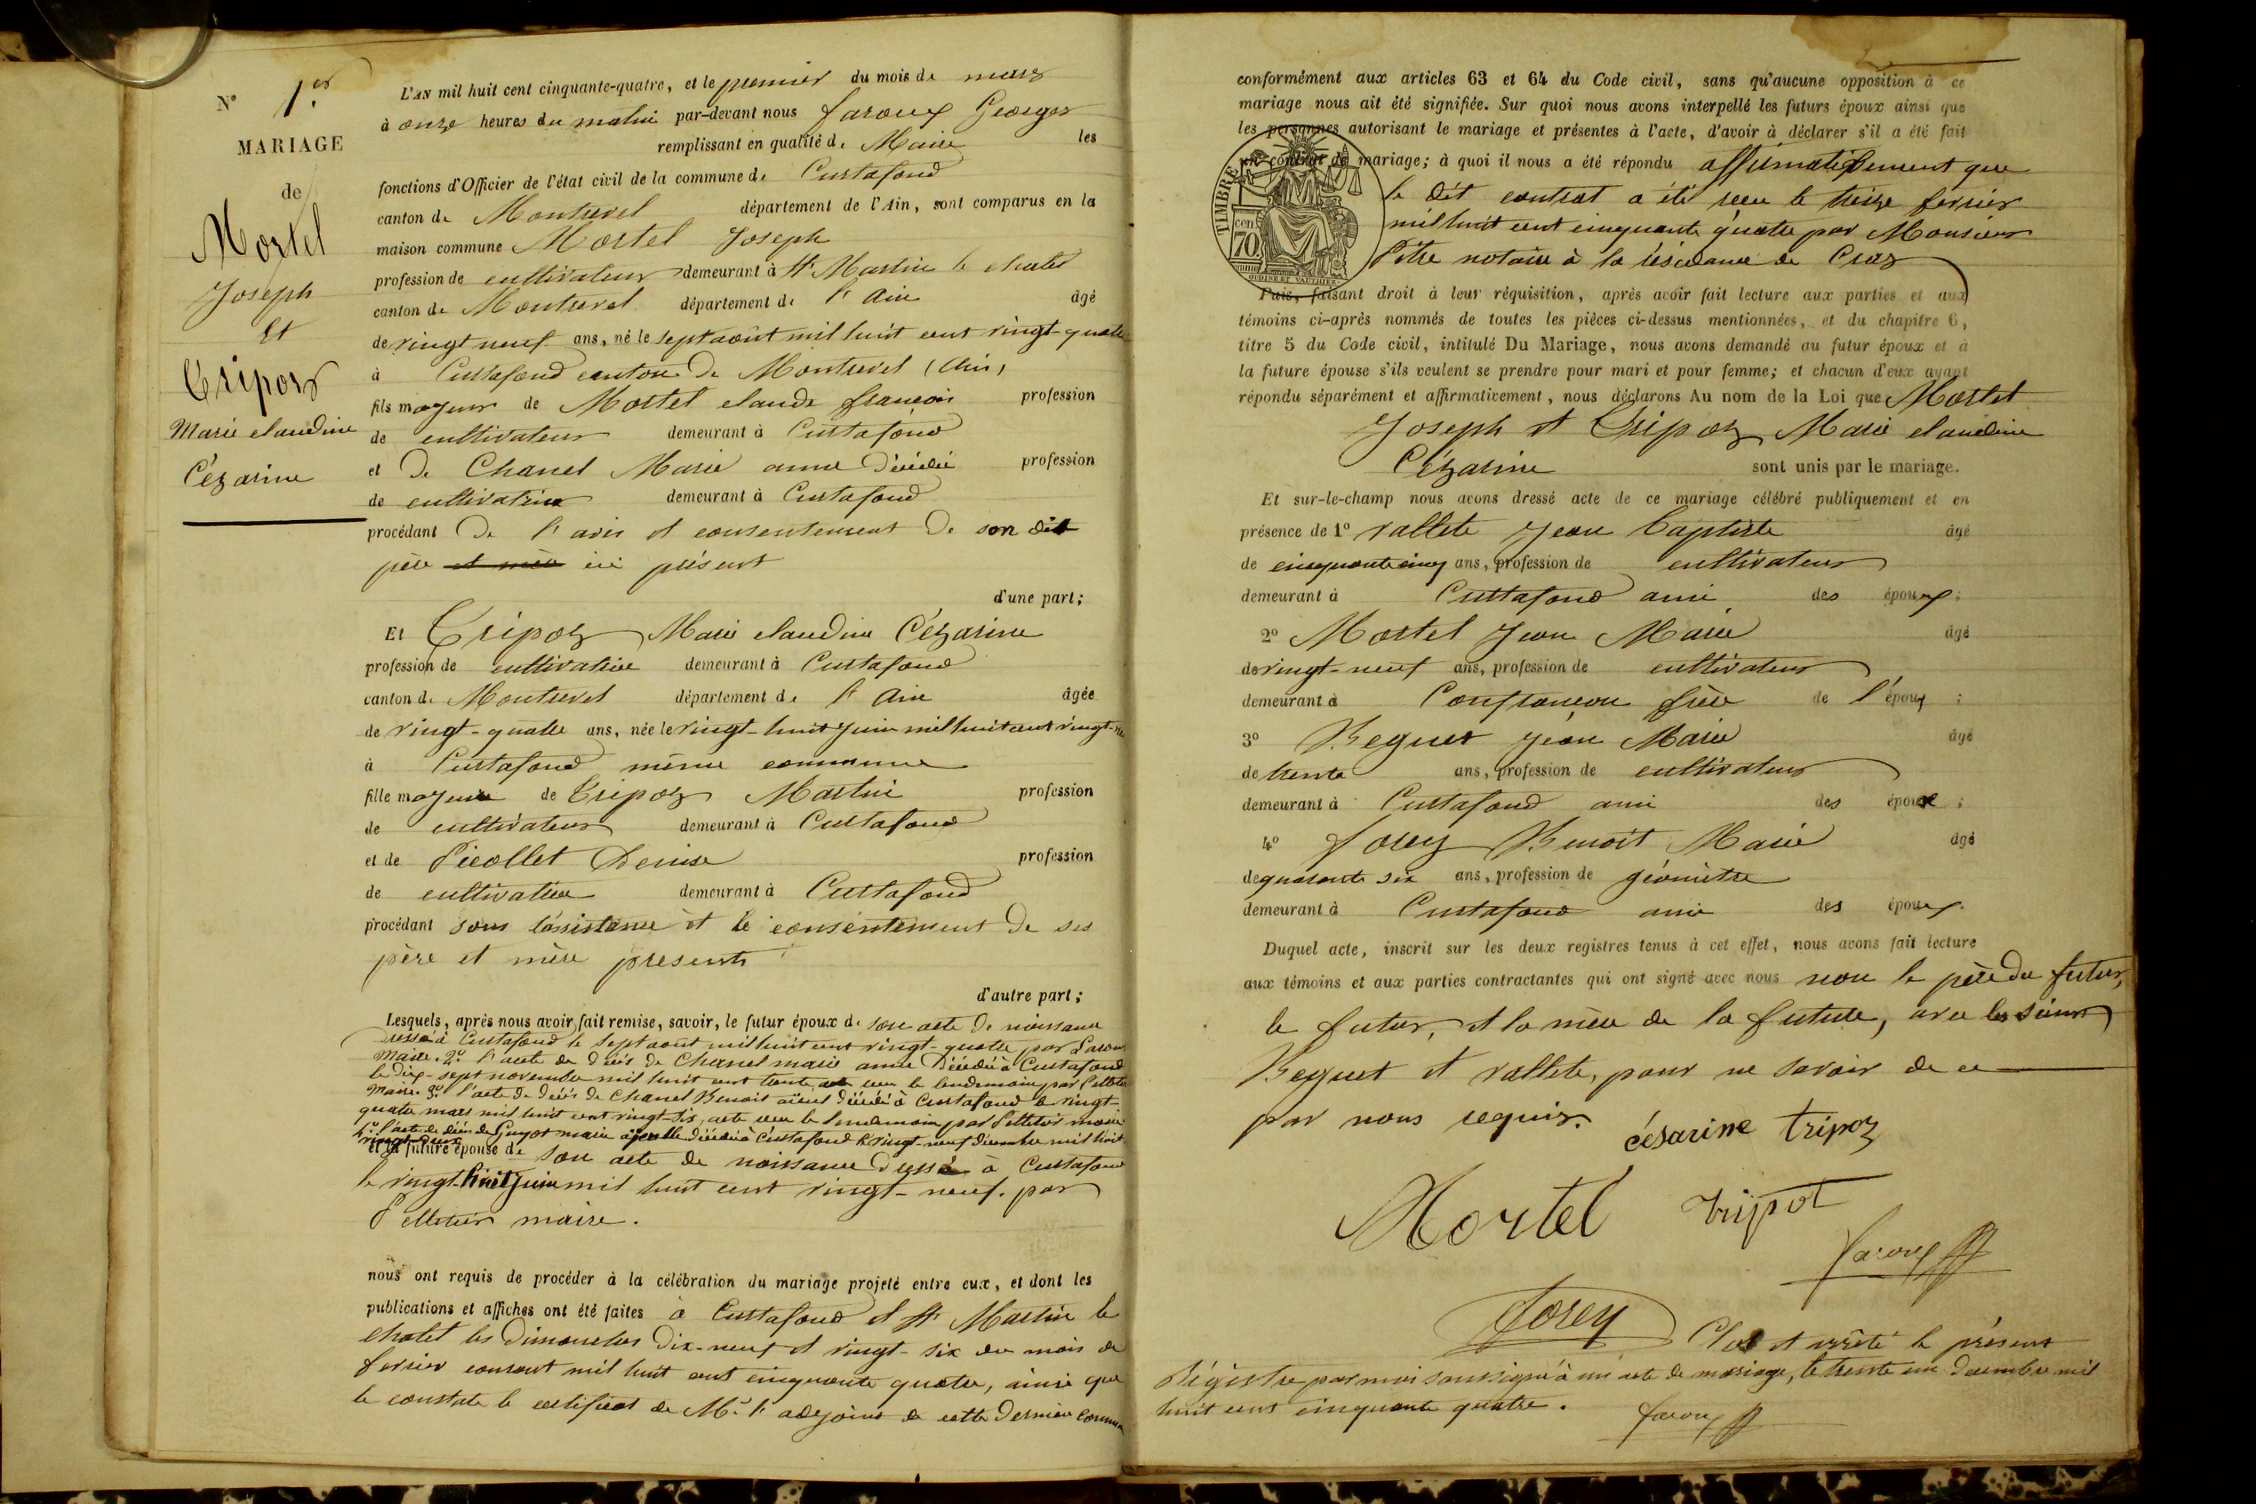 N° 1er
MARIAGE
de
Mortel
Joseph
Et
Tripoz
Marie claudine
Cézarine
L'AN mil huit cent cinquante-quatre, et le premier du mois de mars
à onze heures du matin par-devant nous Faroux Georges
remplissant en qualité de Maire les
fonctions d'Officier de l'état civil de la commune de Curtafond
canton de Montrevel département de l'Ain, sont comparus en la
maison commune Mortel Joseph
profession de cultivateur demeurant à St Martin le chatel
canton de Montrevel département de l'Ain âgé
de vingt neuf ans, né le sept août mil huit cent vingt-quatre
à Curtafond canton de Montrevel (Ain)
fils majeur de Mortel claude françois profession
de cultivateur demeurant à Curtafond
et de Chanel Marie anne décédée profession
de cultivatrice demeurant à Curtafond
procédant de l'avis et consentement de son dit
père et mère ici présent
d'une part;
Et Tripoz Marie claudine Cézarine
profession de cultivatrice demeurant à Curtafond
canton de Montrevel département de l'Ain âgée
de vingt-quatre ans, née le vingt-huit juin mil huit cent vingt-
à Curtafond même commune
fille majeure de Tripoz Martin profession
de cultivateur demeurant à Curtafond
et de Picollet Denise profession
de cultivatrice demeurant à Curtafond
procédant sous l'assistance et le consentement de ses
père et mère présents
d'autre part;
Lesquels, après nous avoir fait remise, savoir, le futur époux de son acte de naissance
dressé à Curtafond le sept aout mil huit cent vingt-quatre par
Maire. 2° l'acte de décès de Chanel marie anne décédée à Curtafond
le dix-sept novembre mil huit cent trente reçu le lendemain par
Maire. 3° l'acte de décès de Chanel Benoit aïeul décédé à Curtafond le vingt-
quatre mars mil huit cent vingt-six, acte reçu le lendemain par Pelletier maire
4° l'acte de décès de Guyot marie ayeulle décédée à Curtafond le vingt-neuf décembre mil huit
vingt-deux
et la future épouse de son acte de naissance dressé à Curtafond
le vingt-huit juin mil huit cent vingt-neuf. par
Pelletier maire.
nous ont requis de procéder à la célébration du mariage projeté entre eux, et dont les
publications et affiches ont été faites à Curtafond et St Martin le
chatel les Dimanches Dix-neuf et vingt-six du mois de
fevrier courant mil huit cent cinquante quatre, ainsi que
le constate le certificat de Mr l'adjoint de cette dernière
conformément aux articles 63 et 64 du Code civil, sans qu'aucune opposition à ce
mariage nous ait été signifiée. Sur quoi nous avons interpellé les futurs époux ainsi que
les personnes autorisant le mariage et présentes à l'acte, d'avoir à déclarer s'il a été fait
un contrat de mariage; à quoi il nous a été répondu affirmativement que
le dit contrat a été reçu le treize fevrier
mil huit cent cinquante quatre par Monsieur
Pitre notaire à la résidence de Cras
TIMBRE
cen
70
Puis, faisant droit à leur réquisition, après avoir fait lecture aux parties et aux
témoins ci-après nommés de toutes les pièces ci-dessus mentionnées, et du chapitre 6,
titre 5 du Code civil, intitulé Du Mariage, nous avons demandé au futur époux et à
la future épouse s'ils veulent se prendre pour mari et pour femme; et chacun d'eux ayant
répondu séparément et affirmativement, nous déclarons Au nom de la Loi que Mortel
Joseph et Tripoz Marie claudine
Cézarine sont unis par le mariage.
Et sur-le-champ nous avons dressé acte de ce mariage célébré publiquement et en
présence de 1° vallete Jean baptiste âgé
de cinquante cinq ans, profession de cultivateur
demeurant à Curtafond ami des époux;
2° Mortel Jean Marie âgé
de vingt-neuf ans, profession de cultivateur
demeurant à Confrançon frère de l'époux;
3° Beguet Jean Marie âgé
de trente ans, profession de cultivateur
demeurant à Curtafond ami des époux;
4° Jorey Benoit Marie âgé
de quarante six ans, profession de géomètre
demeurant à Curtafond ami des époux.
Duquel acte, inscrit sur les deux registres tenus à cet effet, nous avons fait lecture
aux témoins et aux parties contractantes qui ont signé avec nous non le père du futur,
le futur, et la mère de la future, avec les sieurs
Beguet et vallete, pour ne savoir de ce
par nous requis.
césarine tripoz
Mortel tripot
faroux
Jorey
Clos et arrêté le présent
Régistre par moi soussigné à un acte de mariage, le trente un décembre mil
huit cent cinquante quatre. faroux